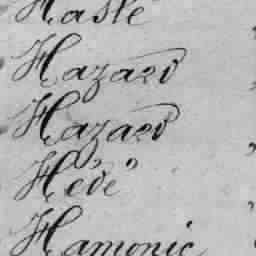 Haslé
Hazard
Hazard
Hédé
Hamonic